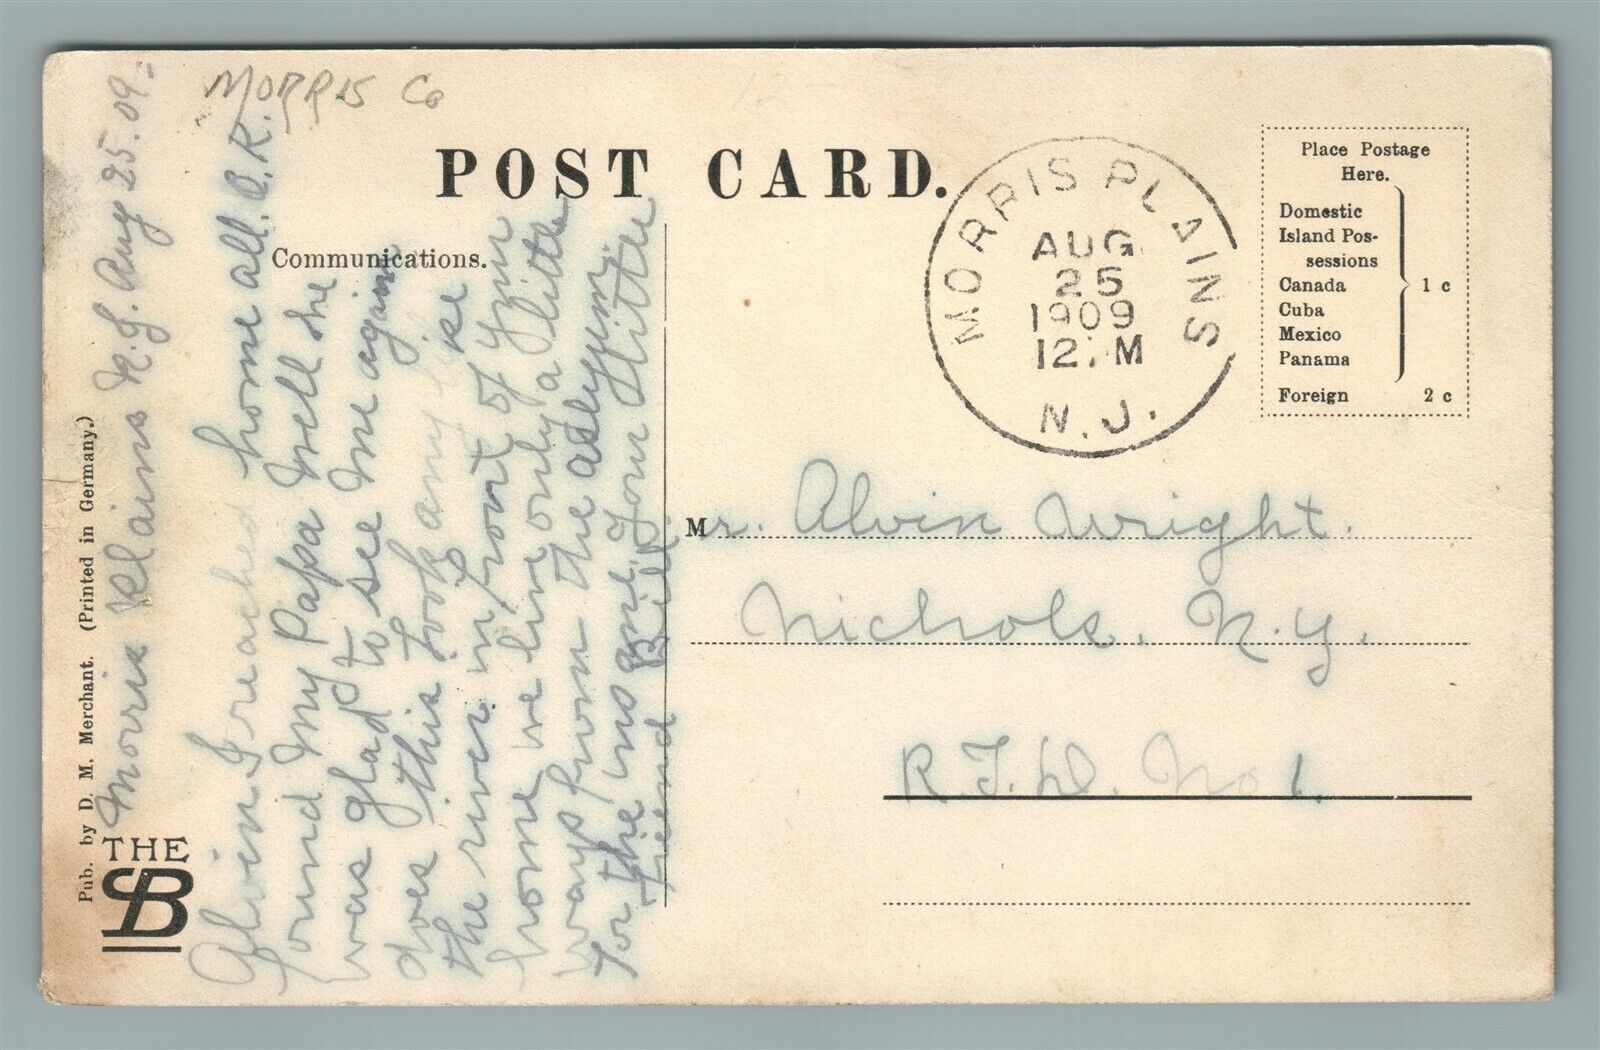 MORRIS Co
POST CARD.
Communications.
MORRIS PLAINS
AUG
25
1909
12 M
N.J.
Place Postage
Here.
Domestic
Island Pos-
sessions
Canada
Cuba
Mexico
Panama
1 c
Foreign 2 c
Morris Plains N.J. Aug 25. 09.
Alvin I reached home all O.K.
found my Papa well she
was glad to see me again
does this look any like
the river in front of your
home we live only a little
ways from the asylum.
for the ins one. Your little
friend Bill.
Mr. Alvin Wright.
Nichols. N.Y.
R.F.D. No 1.
Pub. by D. M. Merchant. (Printed in Germany.)
THE
SB